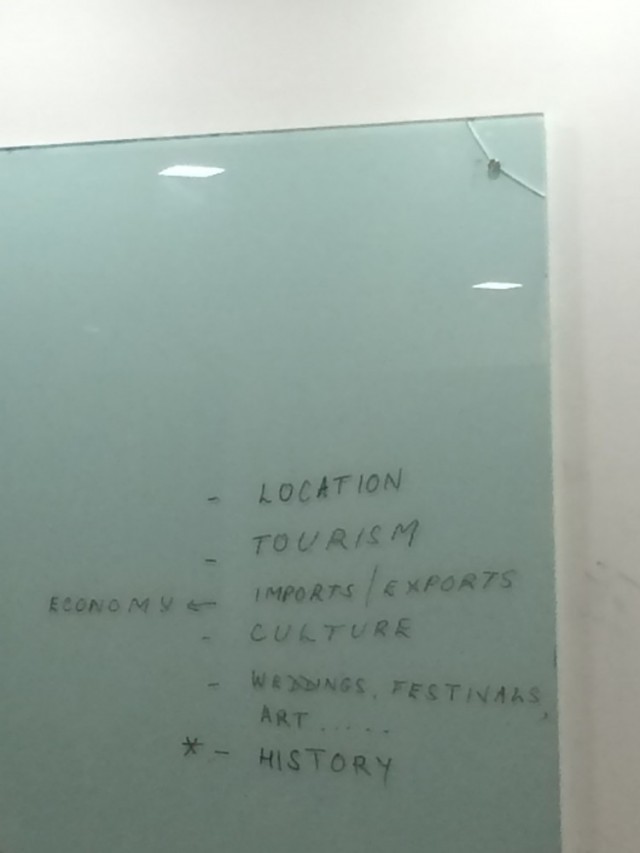 - LOCATION
- TOURISM
ECONOMY ← IMPORTS / EXPORTS
- CULTURE
- WEDDINGS, FESTIVALS,
ART .....
* - HISTORY